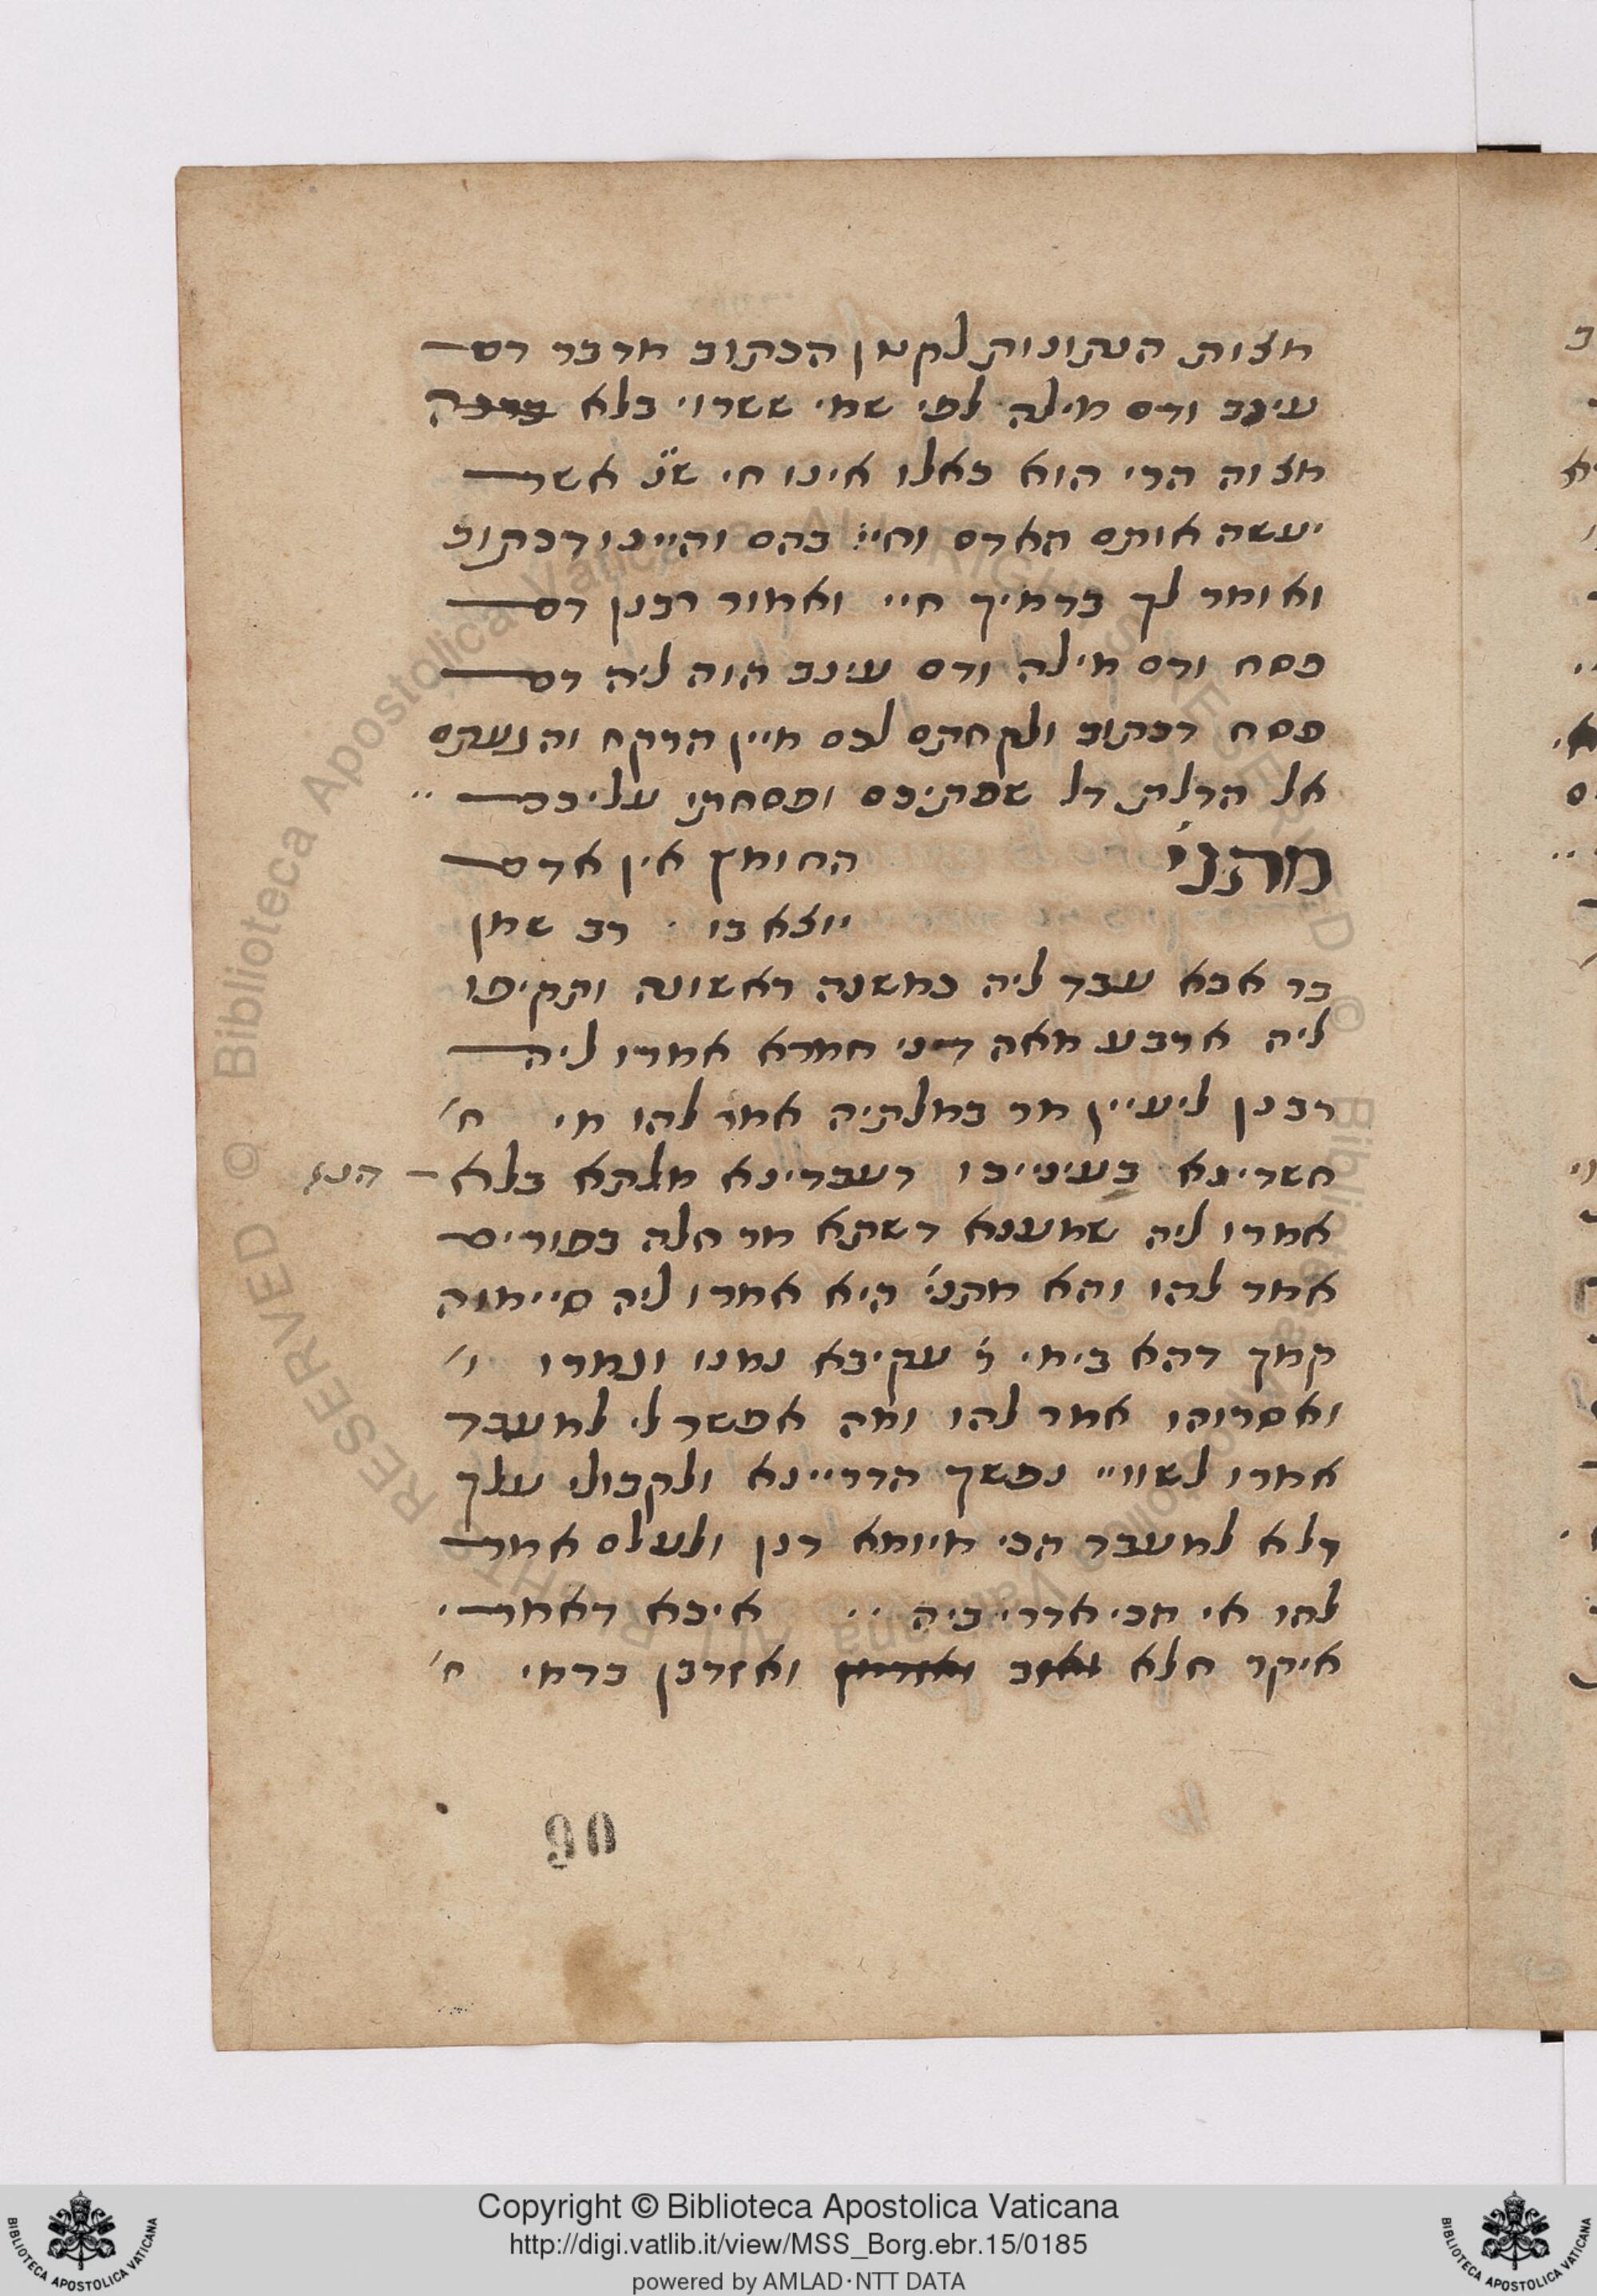 מצות הנתונות לקמן הכתוב מדבר דם
ענב ודם מילה לפי שמי ששרוי בלא
מצוה הרי הוא כאלו אינו חי שנ׳ אשר
יעשה אותם האדם וחי בהם והיינו דכתוב
ואומר לך בדמיך חיי ואמור רבנן דם
פסח ודם מילה ודם ענב הוה ליה דם
פסח דכתוב ולקחתם לכם מיין הרקח והגעתם
אל הדלת דל שפתיכם ופסחתי עליכם
מתני׳ החומץ אין אדם
יוצא בו · רב שמן
בר אבא עבד ליה כמשנה ראשונה ותקיפו
ליה ארבע מאה דני חמרא אמרו ליה
רבנן ליעיין מר במלתיה אמר להו מי ח׳
חשדינא בעיניכו דעבדינא מלתא בלא
הנג
אמרו ליה שמענא דשתא מר חלה בפורים
אמר להו והא מתני׳ היא אמרו ליה סיימוה
קמך דהא בימי ר׳ עקיבא נמנו וגמרו ו׳
ואסרוהו אמר להו ומה אפשר לי למעבד
אמרו לשוויי נפשך הדריינא ולקבולי עלך
דלא למעבד הכי מיומא דנן ולעלם אמר
להו אי הכי אדרי ביה ·· איכא דאמרי
איקר חלא ואזדבן בדמי ח׳
90
Copyright © Biblioteca Apostolica Vaticana
http://digi.vatlib.it/view/MSS_Borg.ebr.15/0185
powered by AMLAD·NTT DATA